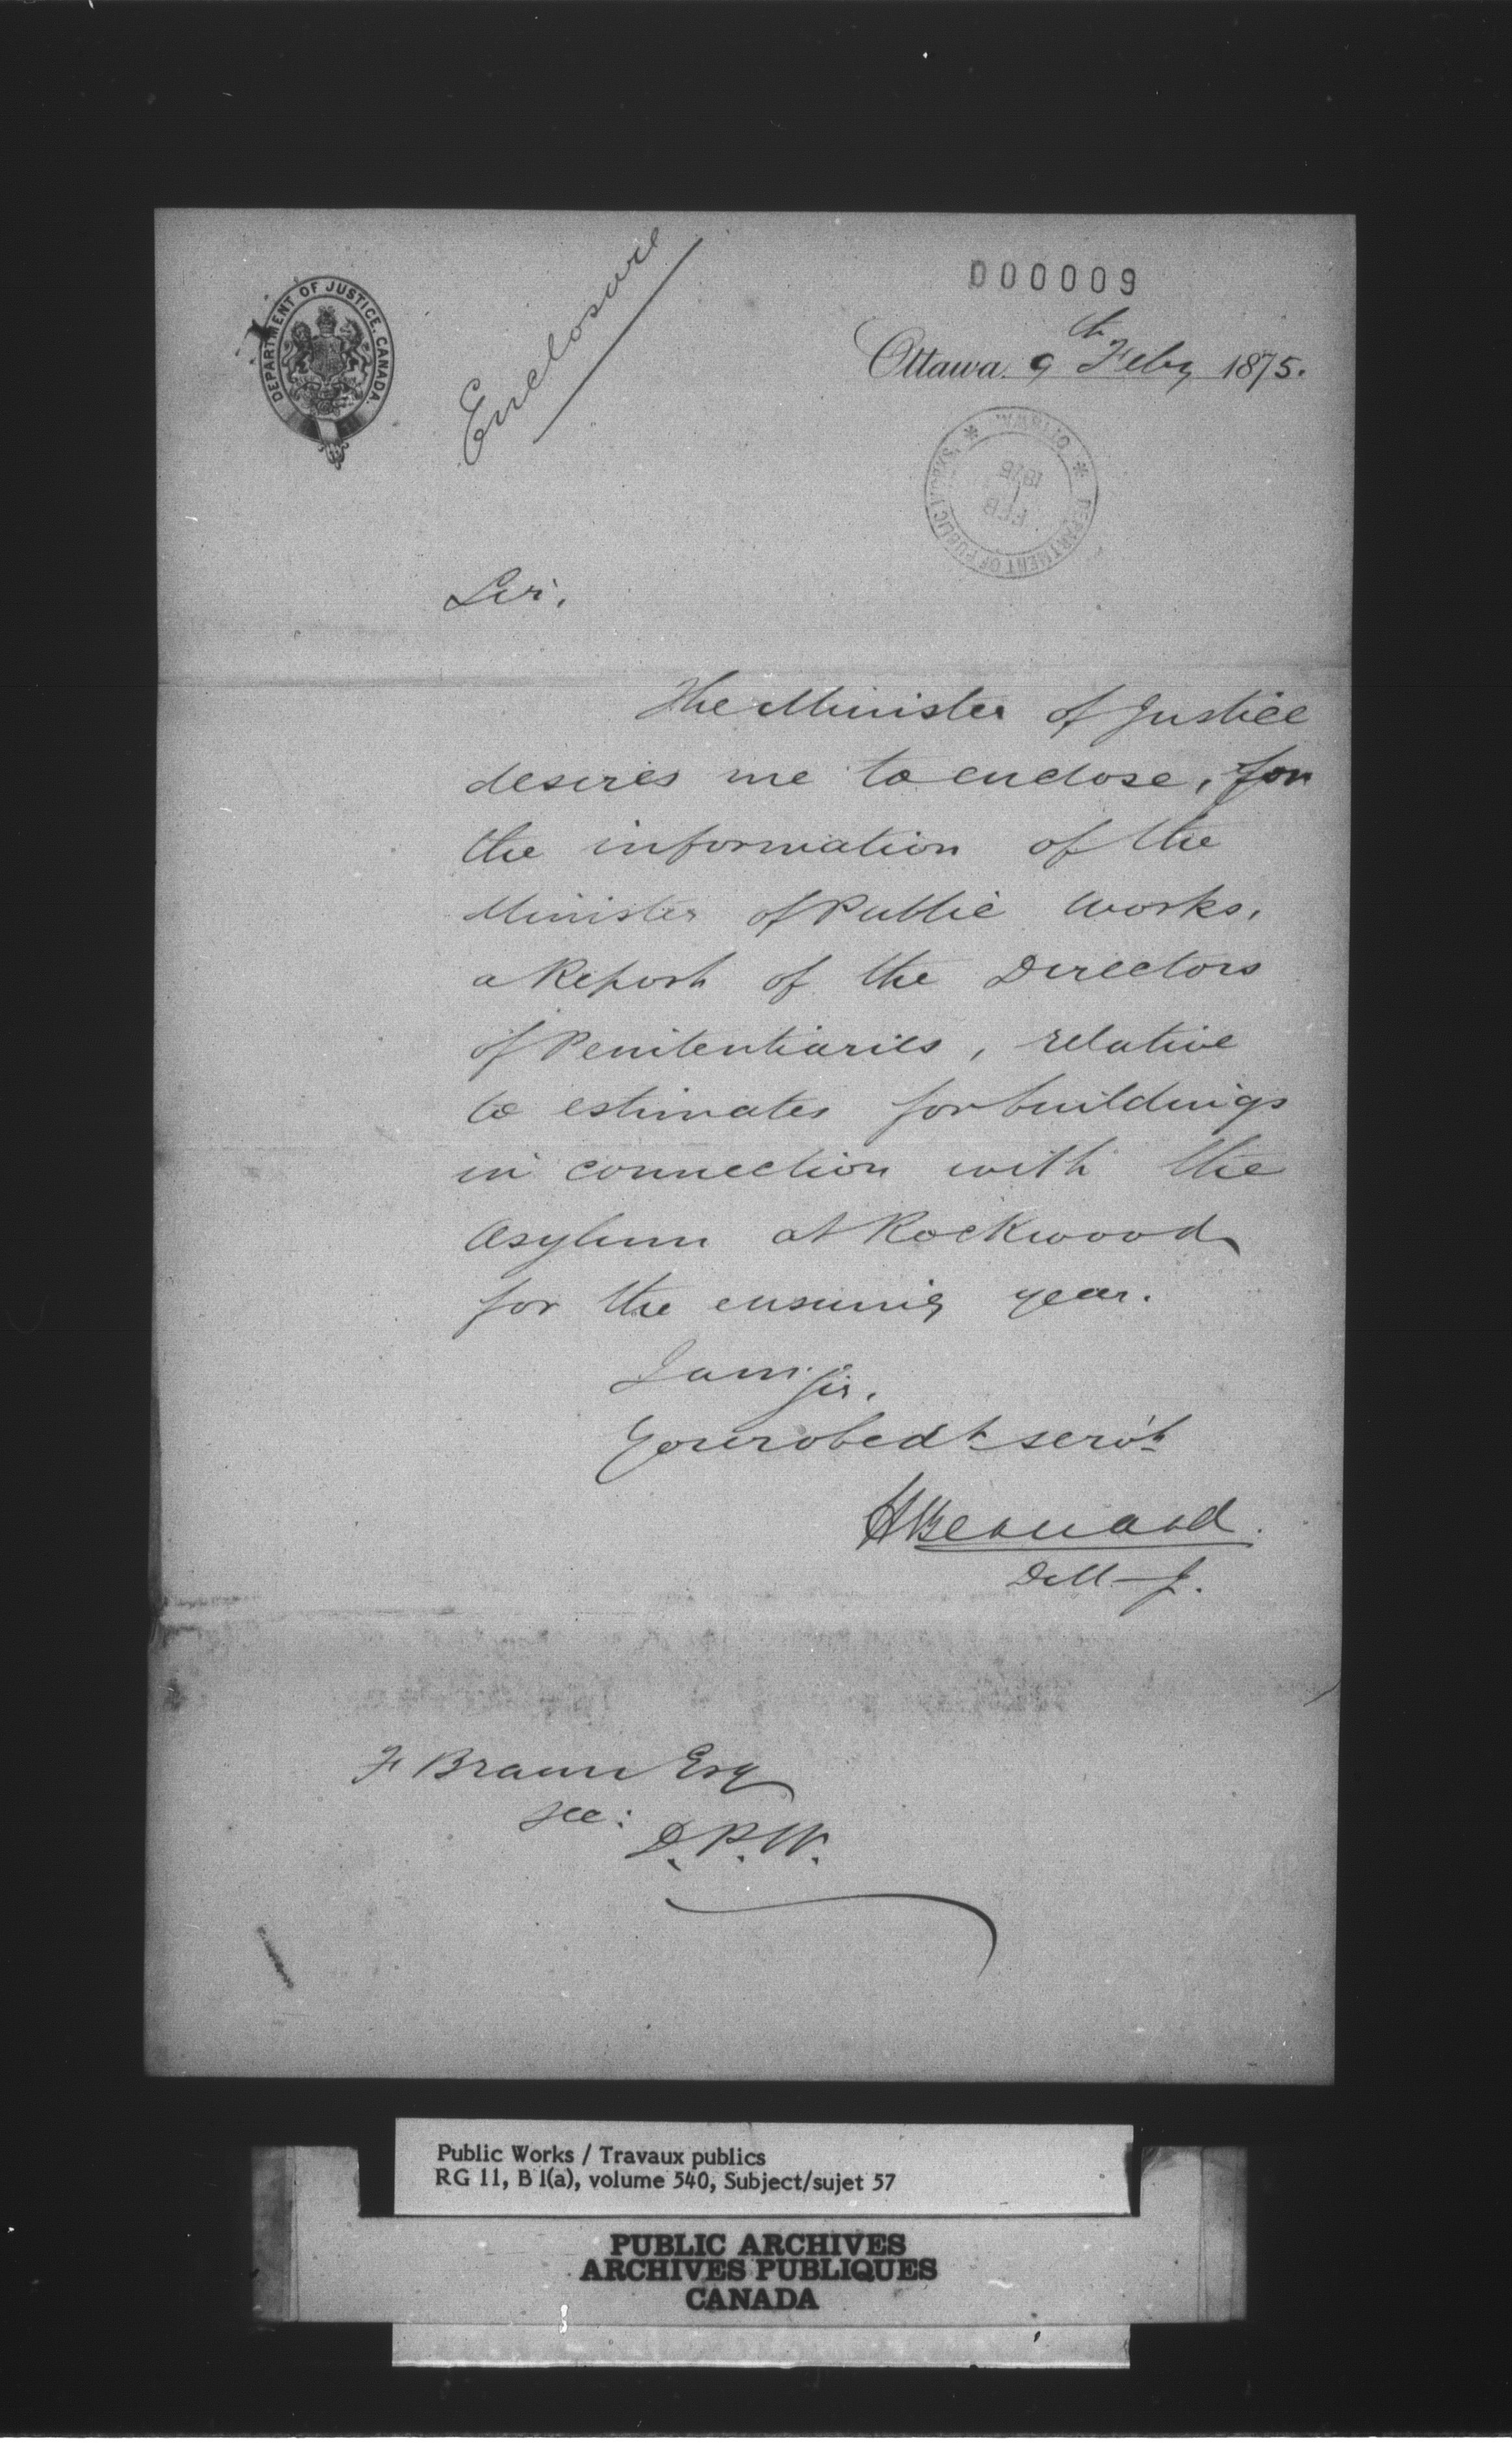 000009
DEPARTMENT OF JUSTICE, CANADA.
Enclosure
Ottawa. 9th Feby 1875.
* OTTAWA * DEPARTMENT OF PUBLIC WORKS
FEB
1875
Sir,
The Minister of Justice
desires me to enclose, for
the information of the
Minister of Public Works,
a Report of the Directors
of Penitentiaries, relative
to estimates for buildings
in connection with the
Asylum at Rockwood
for the ensuing year.
I am Sir,
Your obedt servt
H Bernard
D.M.J.
F Braun Esq
Sec:
D.P.W.
Public Works / Travaux publics
RG 11, B 1(a), volume 540, Subject/sujet 57
PUBLIC ARCHIVES
ARCHIVES PUBLIQUES
CANADA